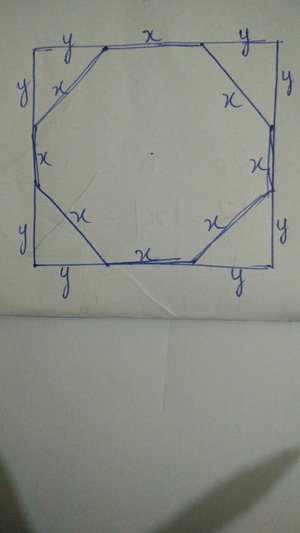 y x y
y x x y
x x
y x x y
x
y y